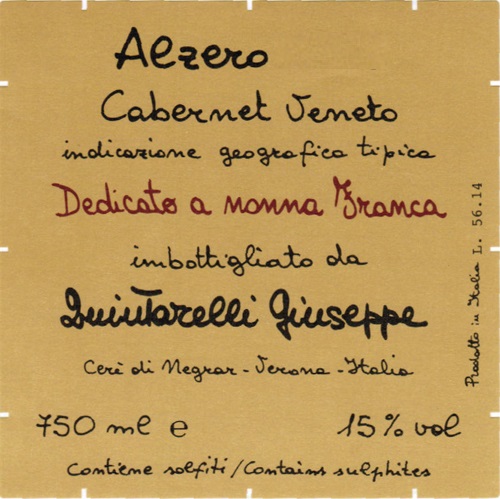 Alzero
Cabernet Veneto
indicazione geografica tipica
Dedicato a nonna Franca
imbottigliato da
Quintarelli Giuseppe
Cerè di Negrar - Verona - Italia
750 ml e
15% vol
Contiene solfiti/Contains sulphites
Prodotto in Italia L. 56.14